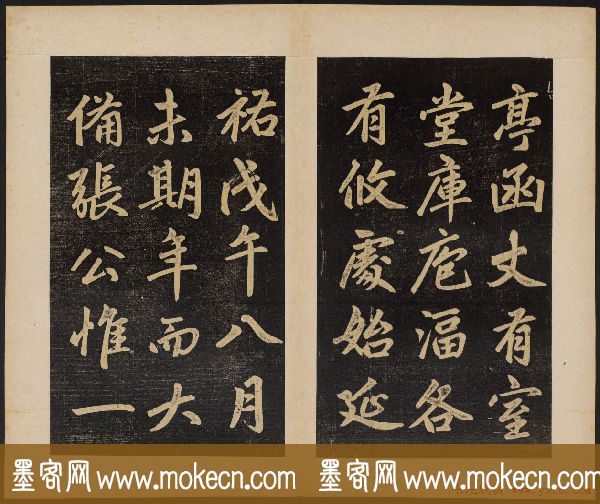 亭函丈有室
堂庫庖湢各
有攸處始延
祐戊午八月
未期年而大
備張公惟一
墨客网 www.mokecn.com 墨客网 www.mokecn.com